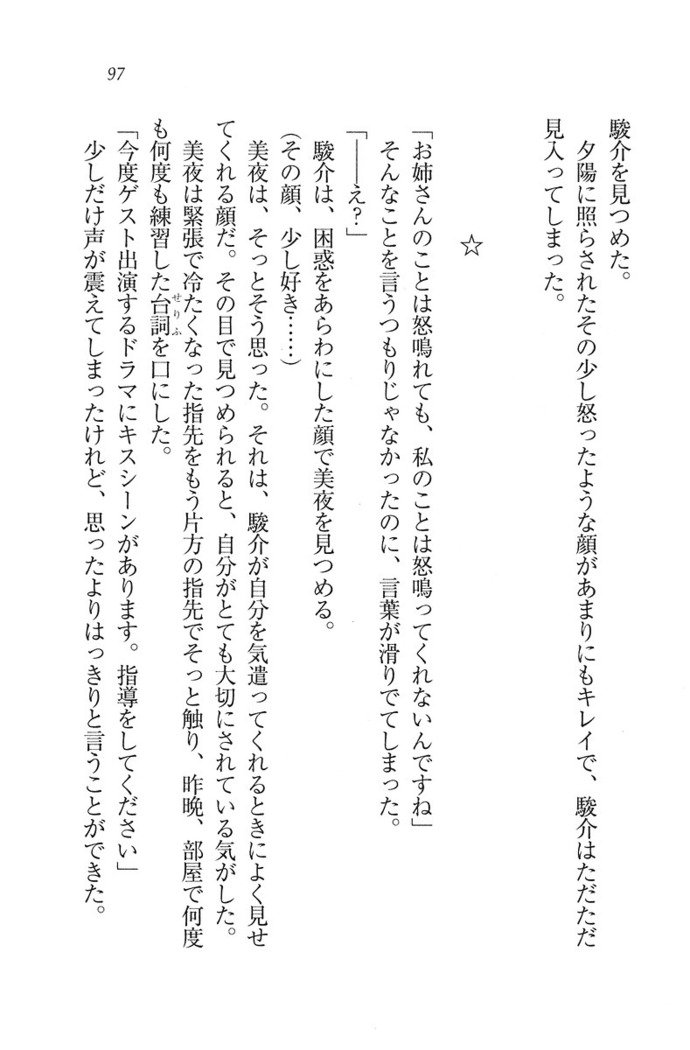 97
駿介を見つめた。
夕陽に照らされたその少し怒ったような顔があまりにもキレイで、駿介はただただ
見入ってしまった。
☆
「お姉さんのことは怒鳴れても、私のことは怒鳴ってくれないんですね」
そんなことを言うつもりじゃなかったのに、言葉が滑りでてしまった。
「――え？」
駿介は、困惑をあらわにした顔で美夜を見つめる。
（その顔、少し好き……）
美夜は、そっとそう思った。それは、駿介が自分を気遣ってくれるときによく見せ
てくれる顔だ。その目で見つめられると、自分がとても大切にされている気がした。
美夜は緊張で冷たくなった指先をもう片方の指先でそっと触り、昨晩、部屋で何度
も何度も練習した台詞を口にした。
せりふ
「今度ゲスト出演するドラマにキスシーンがあります。指導をしてください」
少しだけ声が震えてしまったけれど、思ったよりはっきりと言うことができた。